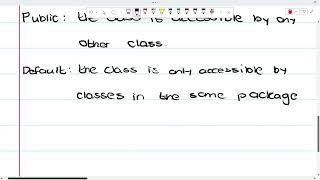 Public: the class is accessible by any
other class.
Default: the class is only accessible by
classes in the same package